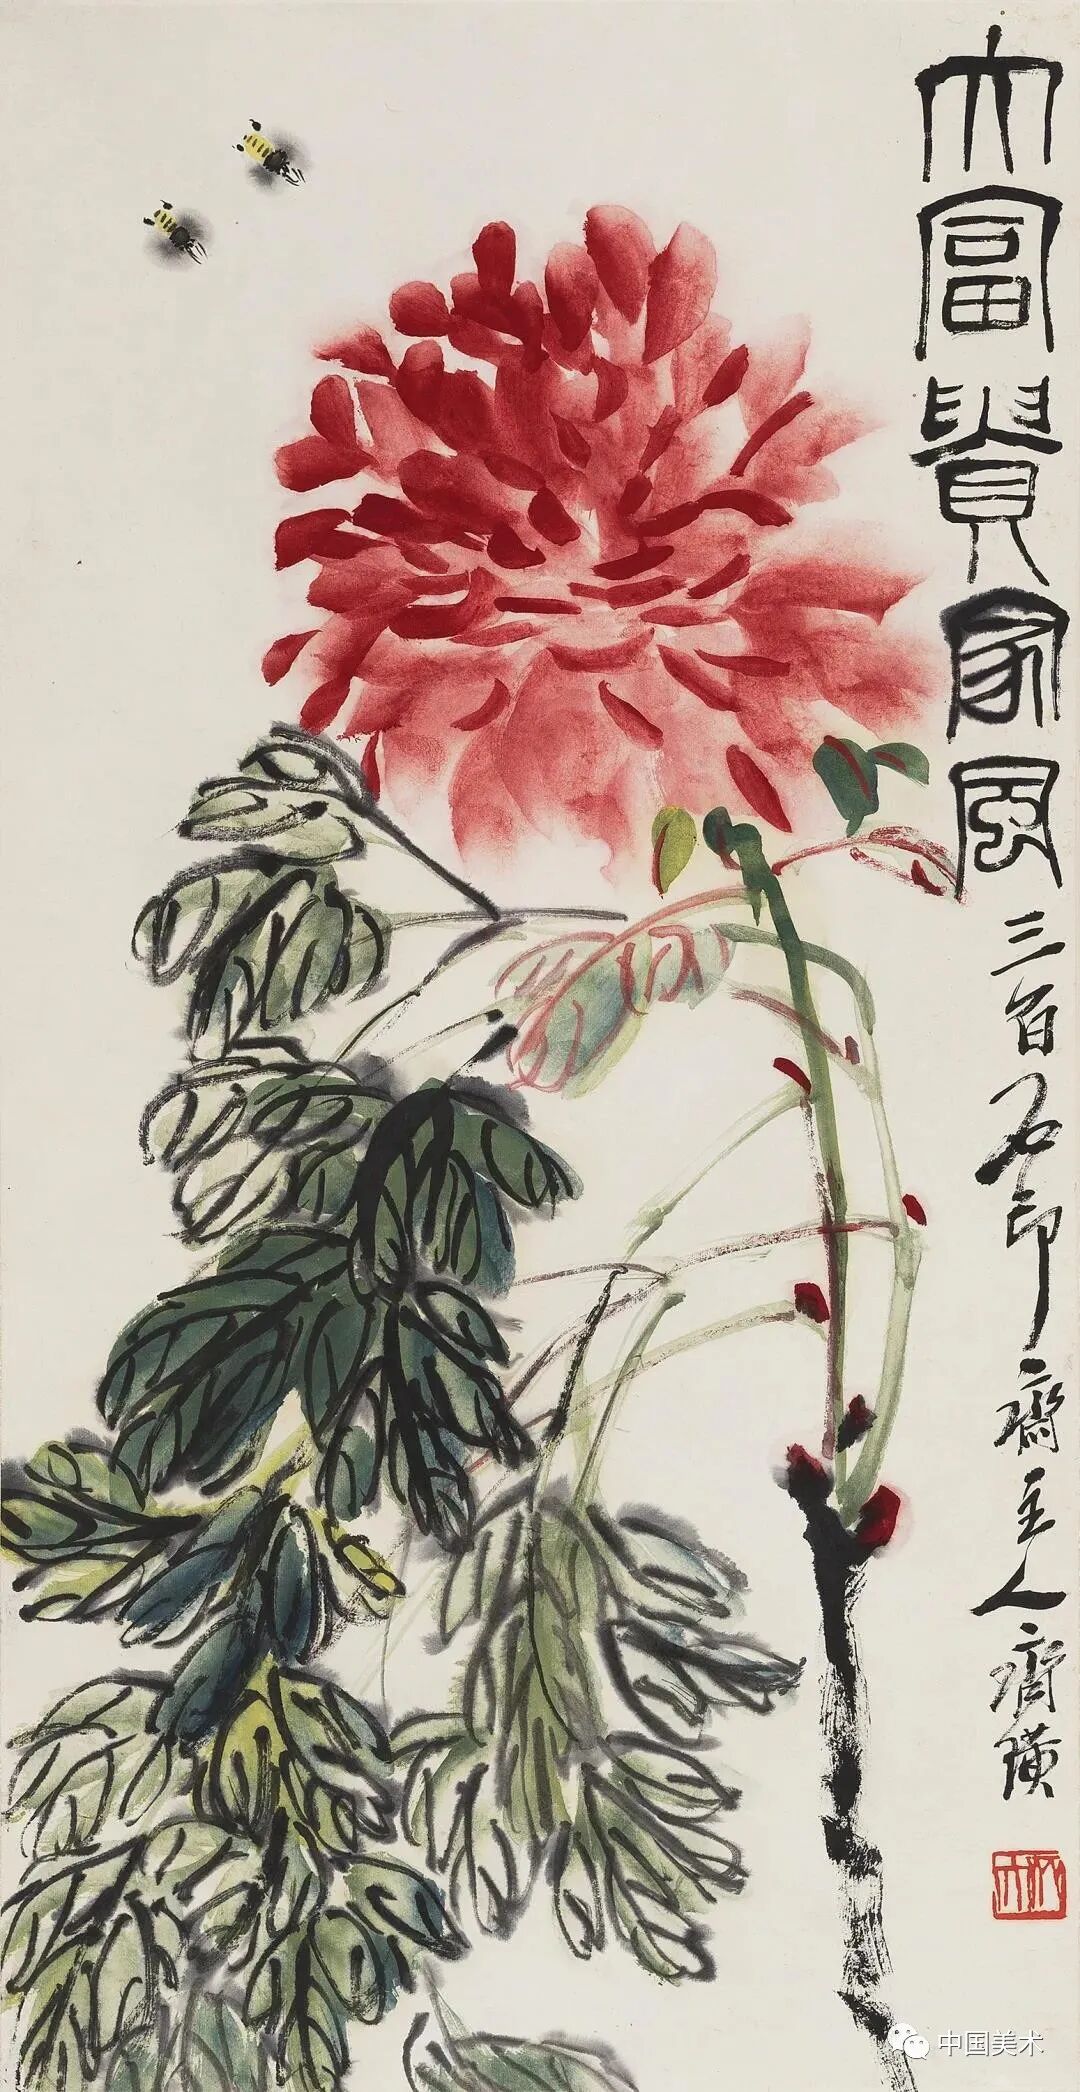 大富貴家風
三百石印齋主人齊璜
中国美术